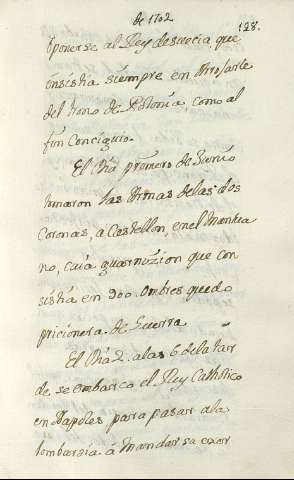 de 1702
128.
oponerse al Rey de suecia, que
insistia siempre en Arrojarle
del trono de Polonia, como al
fin Conciguio.
El Dia primero de Junio
tomaron las Armas de las dos
Coronas, a Castellon, en el Mantua
no, cuia guarnizion que con
sistia en 900. Ombres quedo
pricionera de Guerra.
El Dia 2. a las 6 de la tar
de se embarco el Rey Catholico
en Napoles para pasar a la
lombardia á Mandar su exer